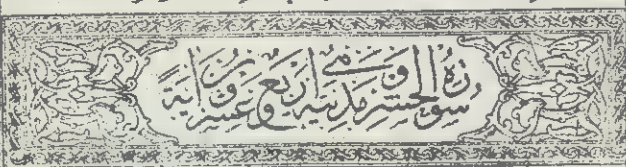 سورة الحشر مدنية وهي أربع وعشرون آية